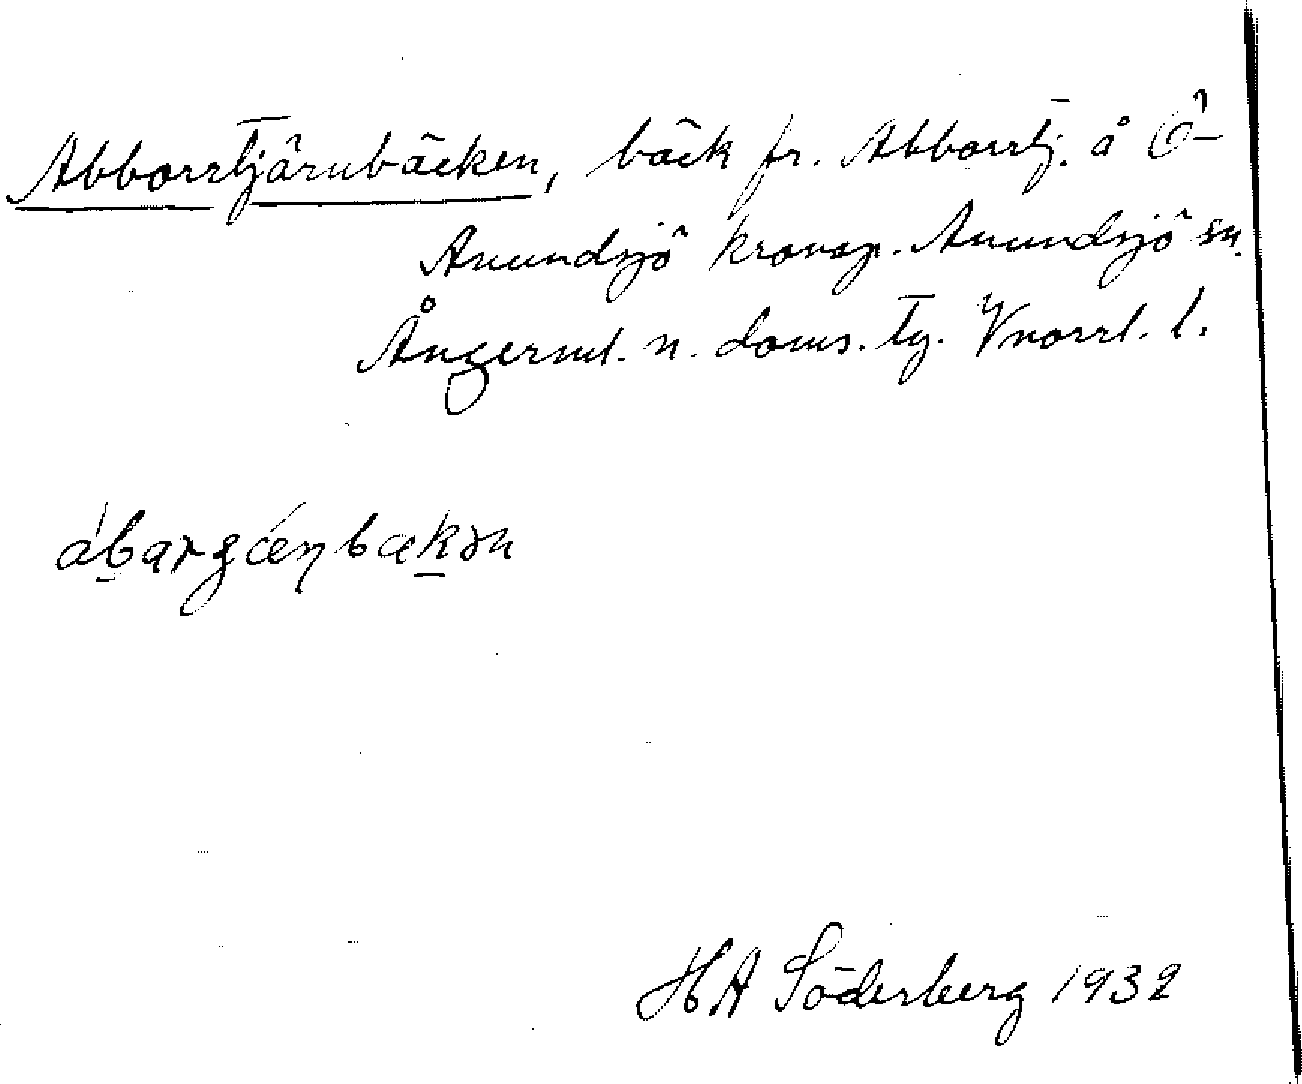 Abborrtjärnbäcken, bäck fr. Abborrtj. å Ö-
Anundsjö kronap. Anundsjö sn.
Ångerml. n. doms. tg. Vnorrl. l.
ábargǽnbækən
HA Söderberg 1932